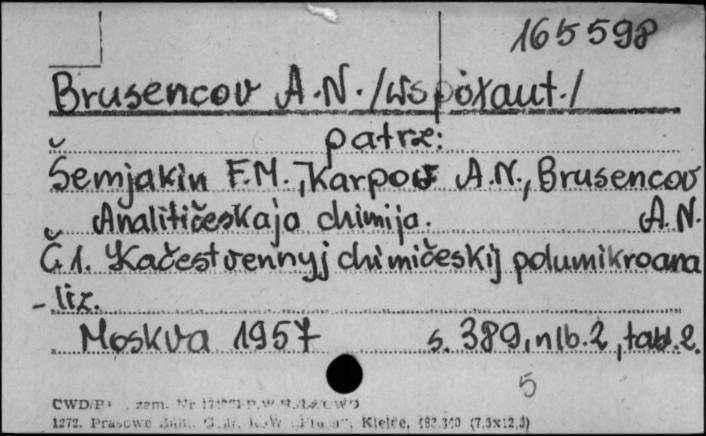 165598
Brusencov A.N. /współaut./
patrz:
Šemjakin F.M., Karpov A.N., Brusencov
A.N.
Analitičeskaja chimija.
Č.1. Kačestvennyj chimičeskij polumikroana
-liz.
Moskva 1957 s. 389, nlb. 2, tabl. 2.
5
CWD/B zam. Nr
1272. Prasowe Kielce, (7,5x12,5)